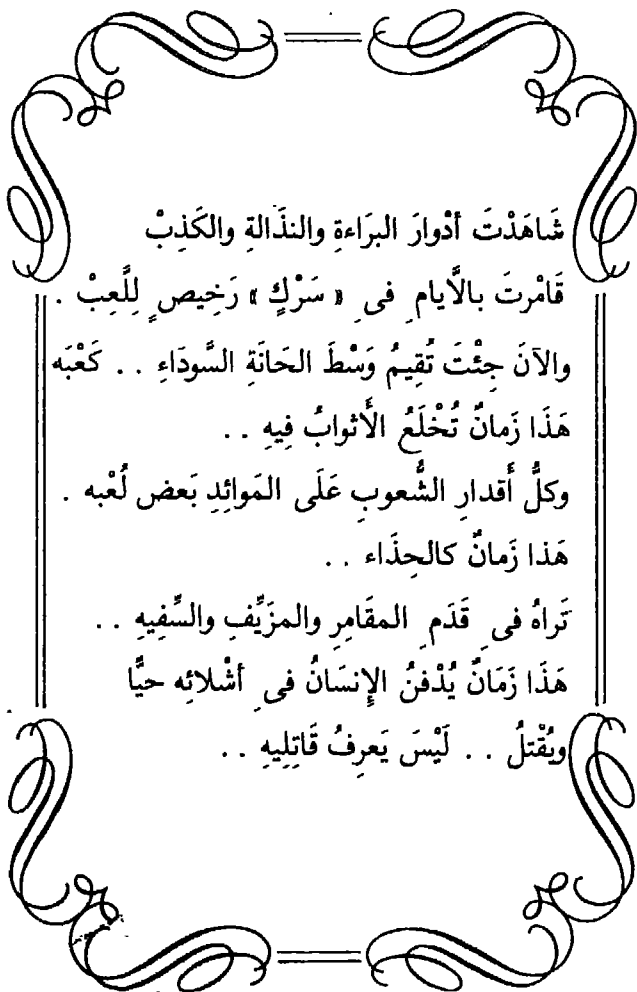 شَاهَدْتَ أدْوارَ البرَاءةِ والنذَالةِ والكَذِبْ
قَامْرتَ بالأَيام ِ فى ِ « سَرْكٍ » رَخِيص ٍ لِلَّعِبْ .
والآنَ جِئْتَ تُقِيمُ وَسْطَ الحَانَةِ السَّودَاءِ . . كَعْبَه
هَذَا زَمانٌ تُخْلَعُ الأَثوابُ فِيهِ . .
وكلُّ أَقدارِ الشُّعوبِ عَلَى المَوائِدِ بَعض لُعْبه .
هَذا زَمانٌ كالحِذَاء . .
تَراهُ فى ِ قَدَم ِ المقَامِرِ والمزَيِّفِ والسَّفِيهِ . .
هَذَا زَمَانٌ يُدْفنُ الإِنسَانُ فى ِ أشْلائِه حيًّا
ويُقْتلُ . . لَيْسَ يَعرِفُ قَاتِلِيهِ . .